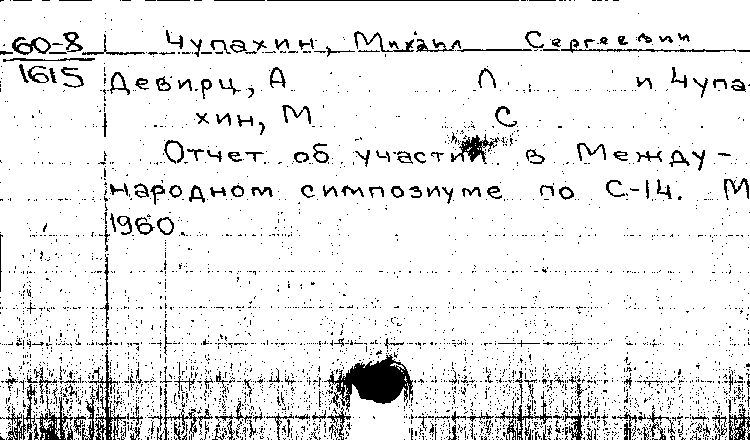 60-8 Чупахин, Михаил Сергеевич
1615 Девирц, А Л и Чупа-
хин, М С
Отчет об участии в Между-
народном симпозиуме по С-14. М
1960.